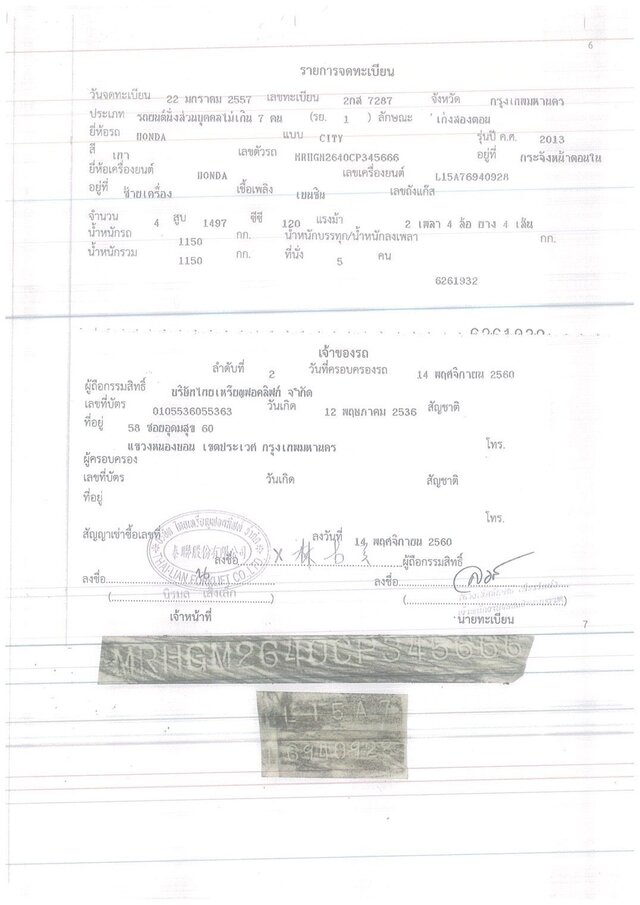 6
รายการจดทะเบียน
วันจดทะเบียน 22 มกราคม 2557 เลขทะเบียน 2กส 7287 จังหวัด กรุงเทพมหานคร
ประเภท รถยนต์นั่งส่วนบุคคลไม่เกิน 7 คน (รย. 1 ) ลักษณะ เก๋งสองตอน
ยี่ห้อรถ HONDA แบบ CITY รุ่นปี ค.ศ. 2013
สี เทา เลขตัวรถ MRHGM2640CP345666 อยู่ที่ กระจังหน้าตอนใน
ยี่ห้อเครื่องยนต์ HONDA เลขเครื่องยนต์ L15A76940928
อยู่ที่ ซ้ายเครื่อง เชื้อเพลิง เบนซิน เลขถังแก๊ส
จำนวน 4 สูบ 1497 ซีซี 120 แรงม้า 2 เพลา 4 ล้อ ยาง 4 เส้น
น้ำหนักรถ 1150 กก. น้ำหนักบรรทุก/น้ำหนักลงเพลา กก.
น้ำหนักรวม 1150 กก. ที่นั่ง 5 คน
6261932
6261932
เจ้าของรถ
ลำดับที่ 2 วันที่ครอบครองรถ 14 พฤศจิกายน 2560
ผู้ถือกรรมสิทธิ์ บริษัทไทยเหรียญฟอคลิฟท์ จำกัด
เลขที่บัตร 0105536055363 วันเกิด 12 พฤษภาคม 2536 สัญชาติ
ที่อยู่ 58 ซอยอุดมสุข 60
แขวงหนองบอน เขตประเวศ กรุงเทพมหานคร โทร.
ผู้ครอบครอง
เลขที่บัตร วันเกิด สัญชาติ
ที่อยู่
โทร.
สัญญาเช่าซื้อเลขที่ ลงวันที่ 14 พฤศจิกายน 2560
股份有限公司
THAI-LIAN FORKLIFT CO.,LTD.
ลงชื่อ X 林 ผู้ถือกรรมสิทธิ์
ลงชื่อ ลงชื่อ
( นิรมล เส็งเล็ก ) ( )
เจ้าหน้าที่ นายทะเบียน
7
MRHGM2640CP345666
L15A7
6940928